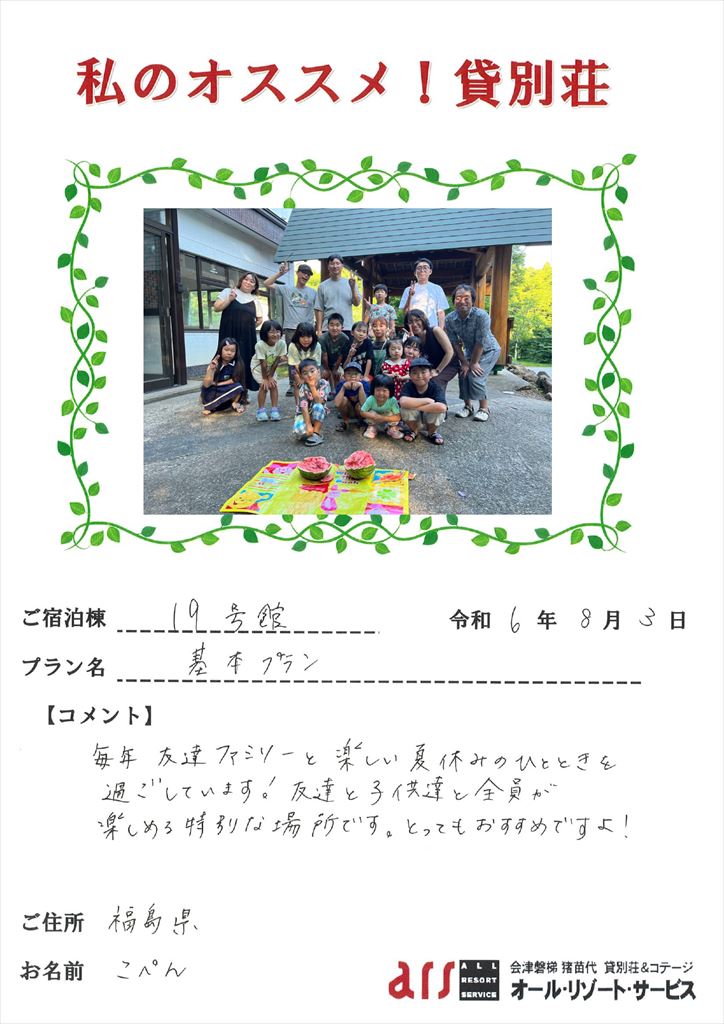 私のオススメ!貸別荘
ご宿泊棟 19号館 令和 6 年 8 月 3 日
プラン名 基本プラン
【コメント】
毎年 友達ファミリーと楽しい夏休みのひとときを
過ごしています! 友達と子供達と全員が
楽しめる特別な場所です。とってもおすすめですよ!
ご住所 福島県
お名前 こぺん
ars ALL RESORT SERVICE 会津磐梯 猪苗代 貸別荘&コテージ
オール・リゾート・サービス